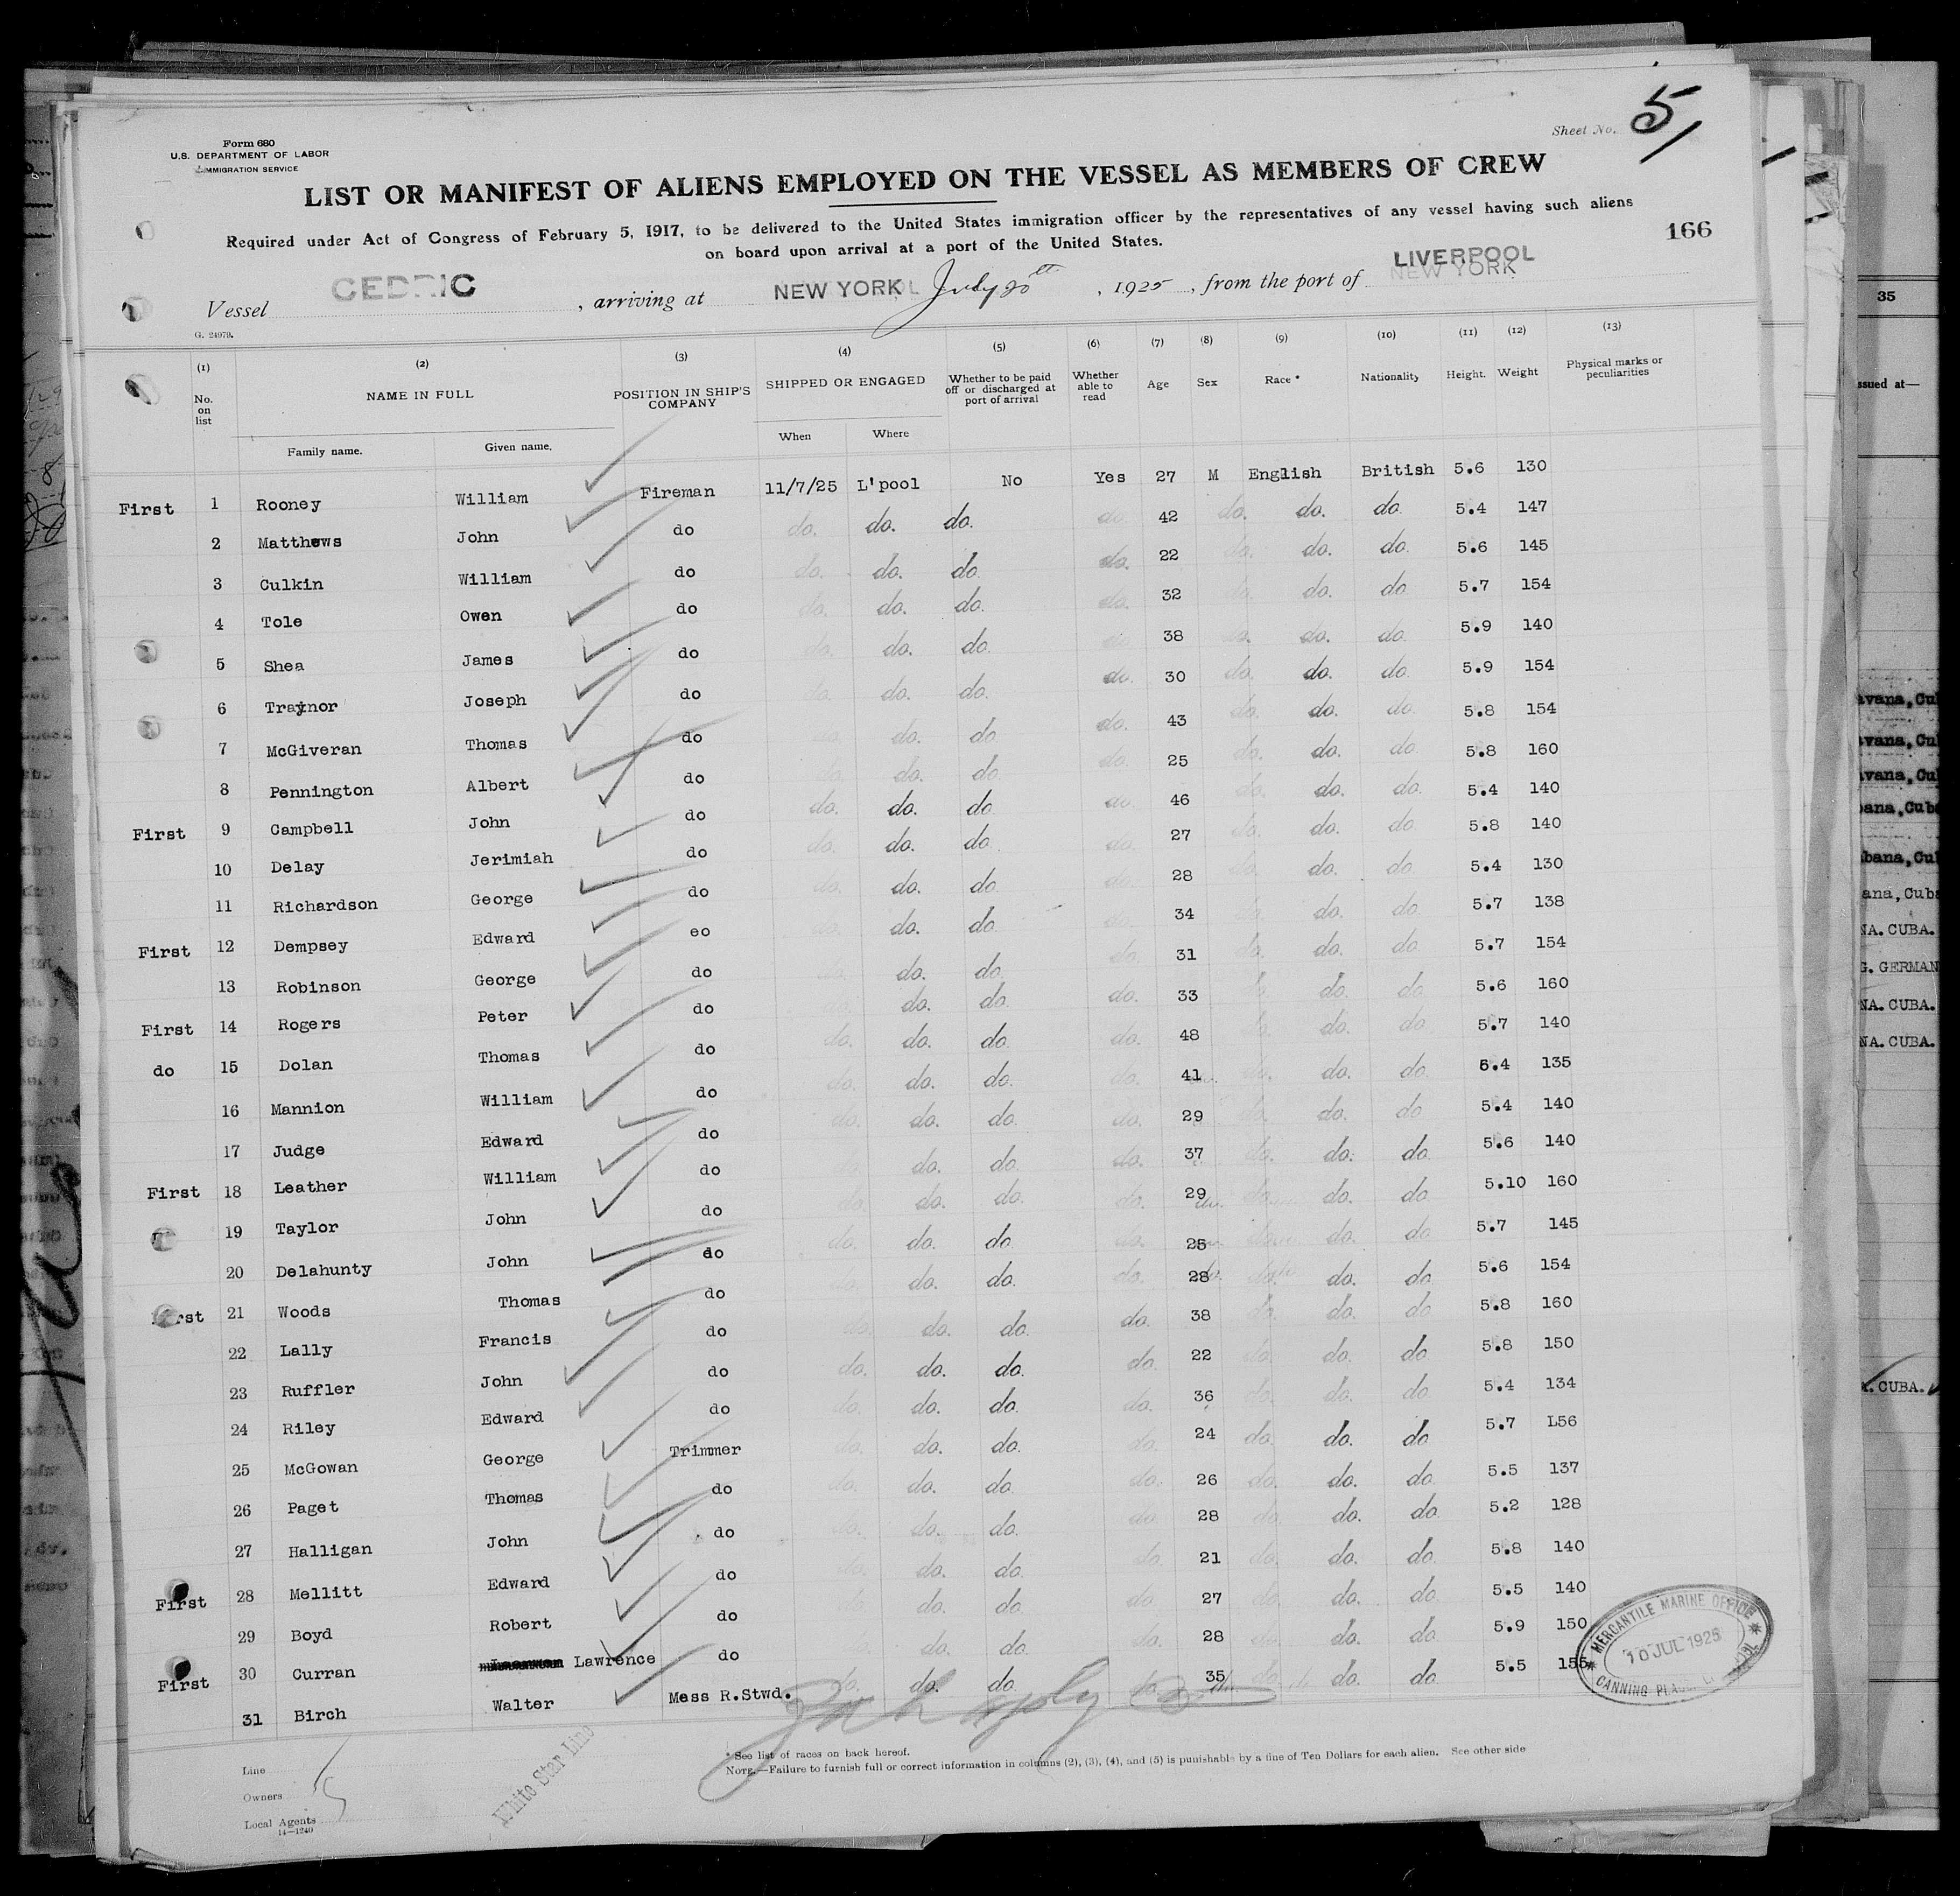 Form 680
U.S. DEPARTMENT OF LABOR
IMMIGRATION SERVICE
Sheet No. 5
LIST OR MANIFEST OF ALIENS EMPLOYED ON THE VESSEL AS MEMBERS OF CREW
Required under Act of Congress of February 5, 1917, to be delivered to the United States immigration officer by the representatives of any vessel having such aliens
on board upon arrival at a port of the United States.
166
Vessel CEDRIC, arriving at NEW YORK July 20th, 1925, from the port of LIVERPOOL NEW YORK
G. 24979.
(1) (2) (3) (4) (5) (6) (7) (8) (9) (10) (11) (12) (13)
No. on list NAME IN FULL POSITION IN SHIP'S COMPANY SHIPPED OR ENGAGED Whether to be paid off or discharged at port of arrival Whether able to read Age Sex Race * Nationality Height. Weight Physical marks or peculiarities
Family name. Given name. When Where
First 1 Rooney William Fireman 11/7/25 L'pool No Yes 27 M English British 5.6 130
2 Matthews John do do. do. do. do. 42 do. do. do. 5.4 147
3 Culkin William do do. do. do. do. 22 do. do. do. 5.6 145
4 Tole Owen do do. do. do. do. 32 do. do. do. 5.7 154
5 Shea James do do. do. do. do. 38 do. do. do. 5.9 140
6 Traynor Joseph do do. do. do. do. 30 do. do. do. 5.9 154
7 McGiveran Thomas do do. do. do. do. 43 do. do. do. 5.8 154
8 Pennington Albert do do. do. do. do. 25 do. do. do. 5.8 160
First 9 Campbell John do do. do. do. do. 46 do. do. do. 5.4 140
10 Delay Jerimiah do do. do. do. do. 27 do. do. do. 5.8 140
11 Richardson George do do. do. do. do. 28 do. do. do. 5.4 130
First 12 Dempsey Edward eo do. do. do. 34 do. do. do. 5.7 138
13 Robinson George do do. do. do. do. 31 do. do. do. 5.7 154
First 14 Rogers Peter do do. do. do. do. 33 do. do. do. 5.6 160
do 15 Dolan Thomas do do. do. do. do. 48 do. do. do. 5.7 140
16 Mannion William do do. do. do. do. 41 do. do. do. 5.4 135
17 Judge Edward do do. do. do. do. 29 do. do. do. 5.4 140
First 18 Leather William do do. do. do. do. 37 do. do. do. 5.6 140
19 Taylor John do do. do. do. do. 29 do. do. do. 5.10 160
20 Delahunty John do do. do. do. do. 25 do. do. do. 5.7 145
First 21 Woods Thomas do do. do. do. do. 28 do. do. do. 5.6 154
22 Lally Francis do do. do. do. do. 38 do. do. do. 5.8 160
23 Ruffler John do do. do. do. do. 22 do. do. do. 5.8 150
24 Riley Edward do do. do. do. do. 36 do. do. do. 5.4 134
25 McGowan George Trimmer do. do. do. do. 24 do. do. do. 5.7 L56
26 Paget Thomas do do. do. do. do. 26 do. do. do. 5.5 137
27 Halligan John do do. do. do. do. 28 do. do. do. 5.2 128
First 28 Mellitt Edward do do. do. do. do. 21 do. do. do. 5.8 140
29 Boyd Robert do do. do. do. do. 27 do. do. do. 5.5 140
First 30 Curran Lawrence do do. do. do. do. 28 do. do. do. 5.9 150
31 Birch Walter Mess R.Stwd. do. do. do. do. 35 do. do. do. 5.5 155
MERCANTILE MARINE OFFICE
10 JUL 1925
CANNING PLACE
Line
Owners
Local Agents
14—1240
White Star Line
* See list of races on back hereof.
NOTE.—Failure to furnish full or correct information in columns (2), (3), (4), and (5) is punishable by a fine of Ten Dollars for each alien. See other side
35
ssued at—
NA. CUBA.
G. GERMAN
NA. CUBA.
NA. CUBA.
CUBA.